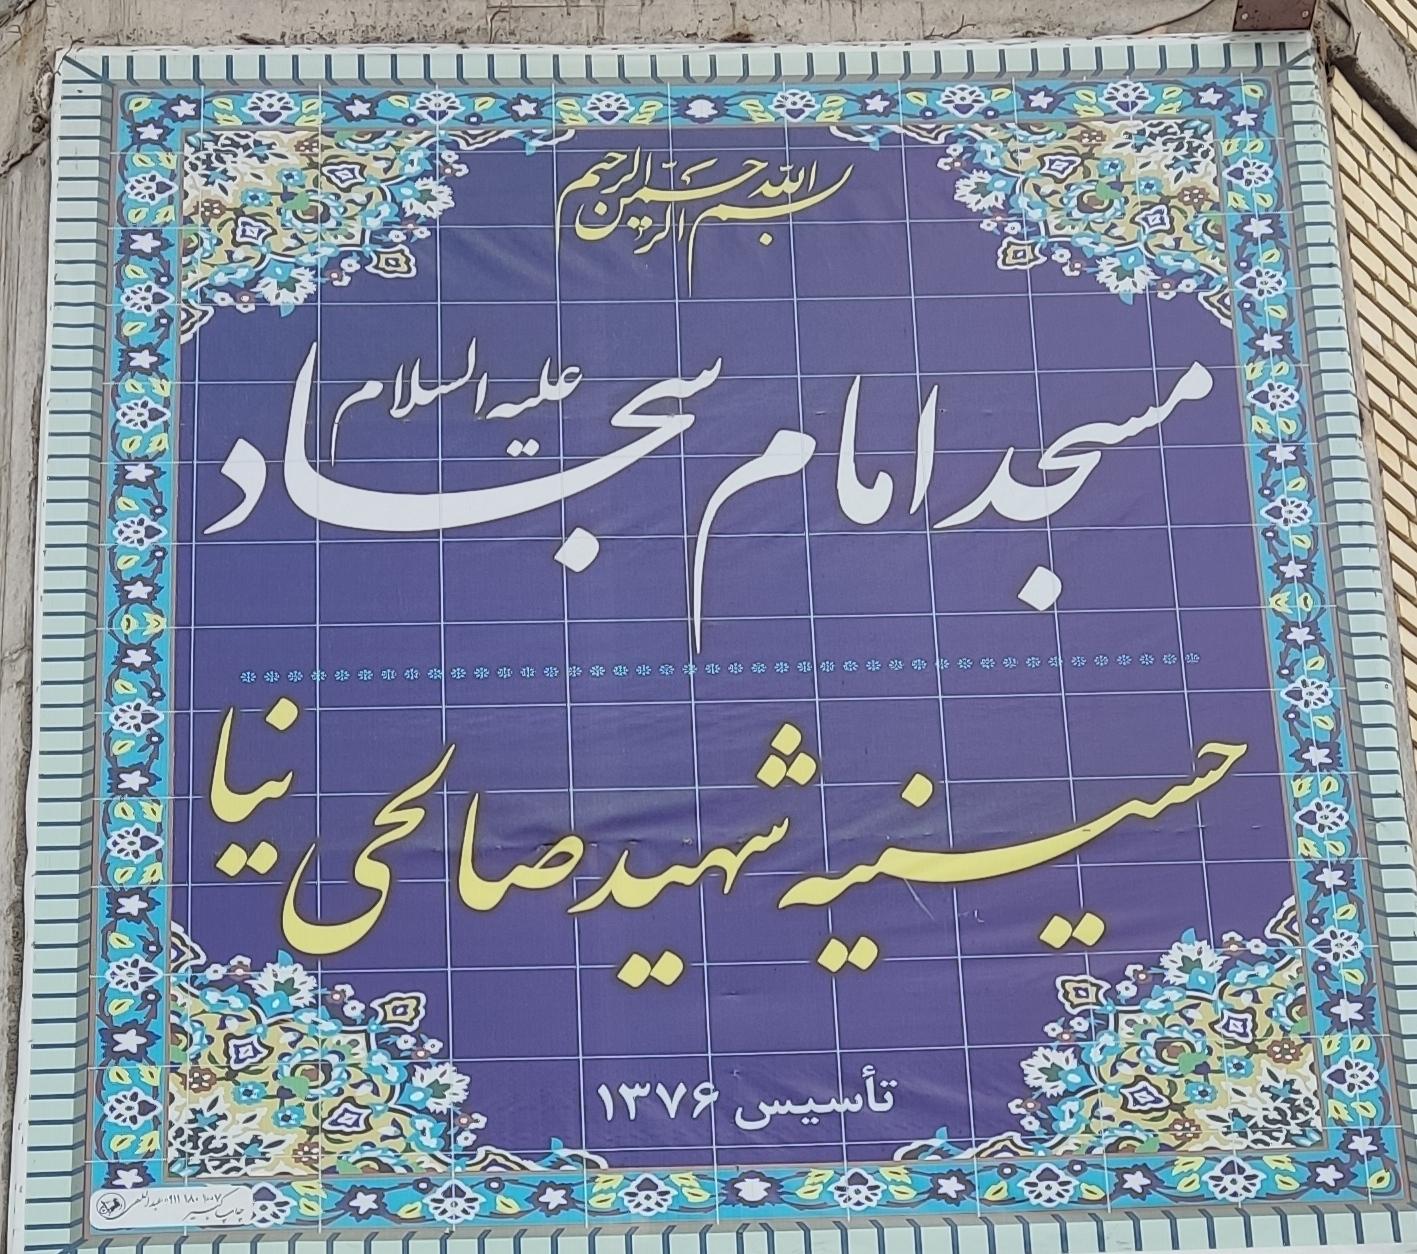 بسم الله الرحمن الرحیم
مسجد امام سجاد علیه السلام
حسینیه شهید صالحی نیا
تأسیس ۱۳۷۶
چاپ کبیر